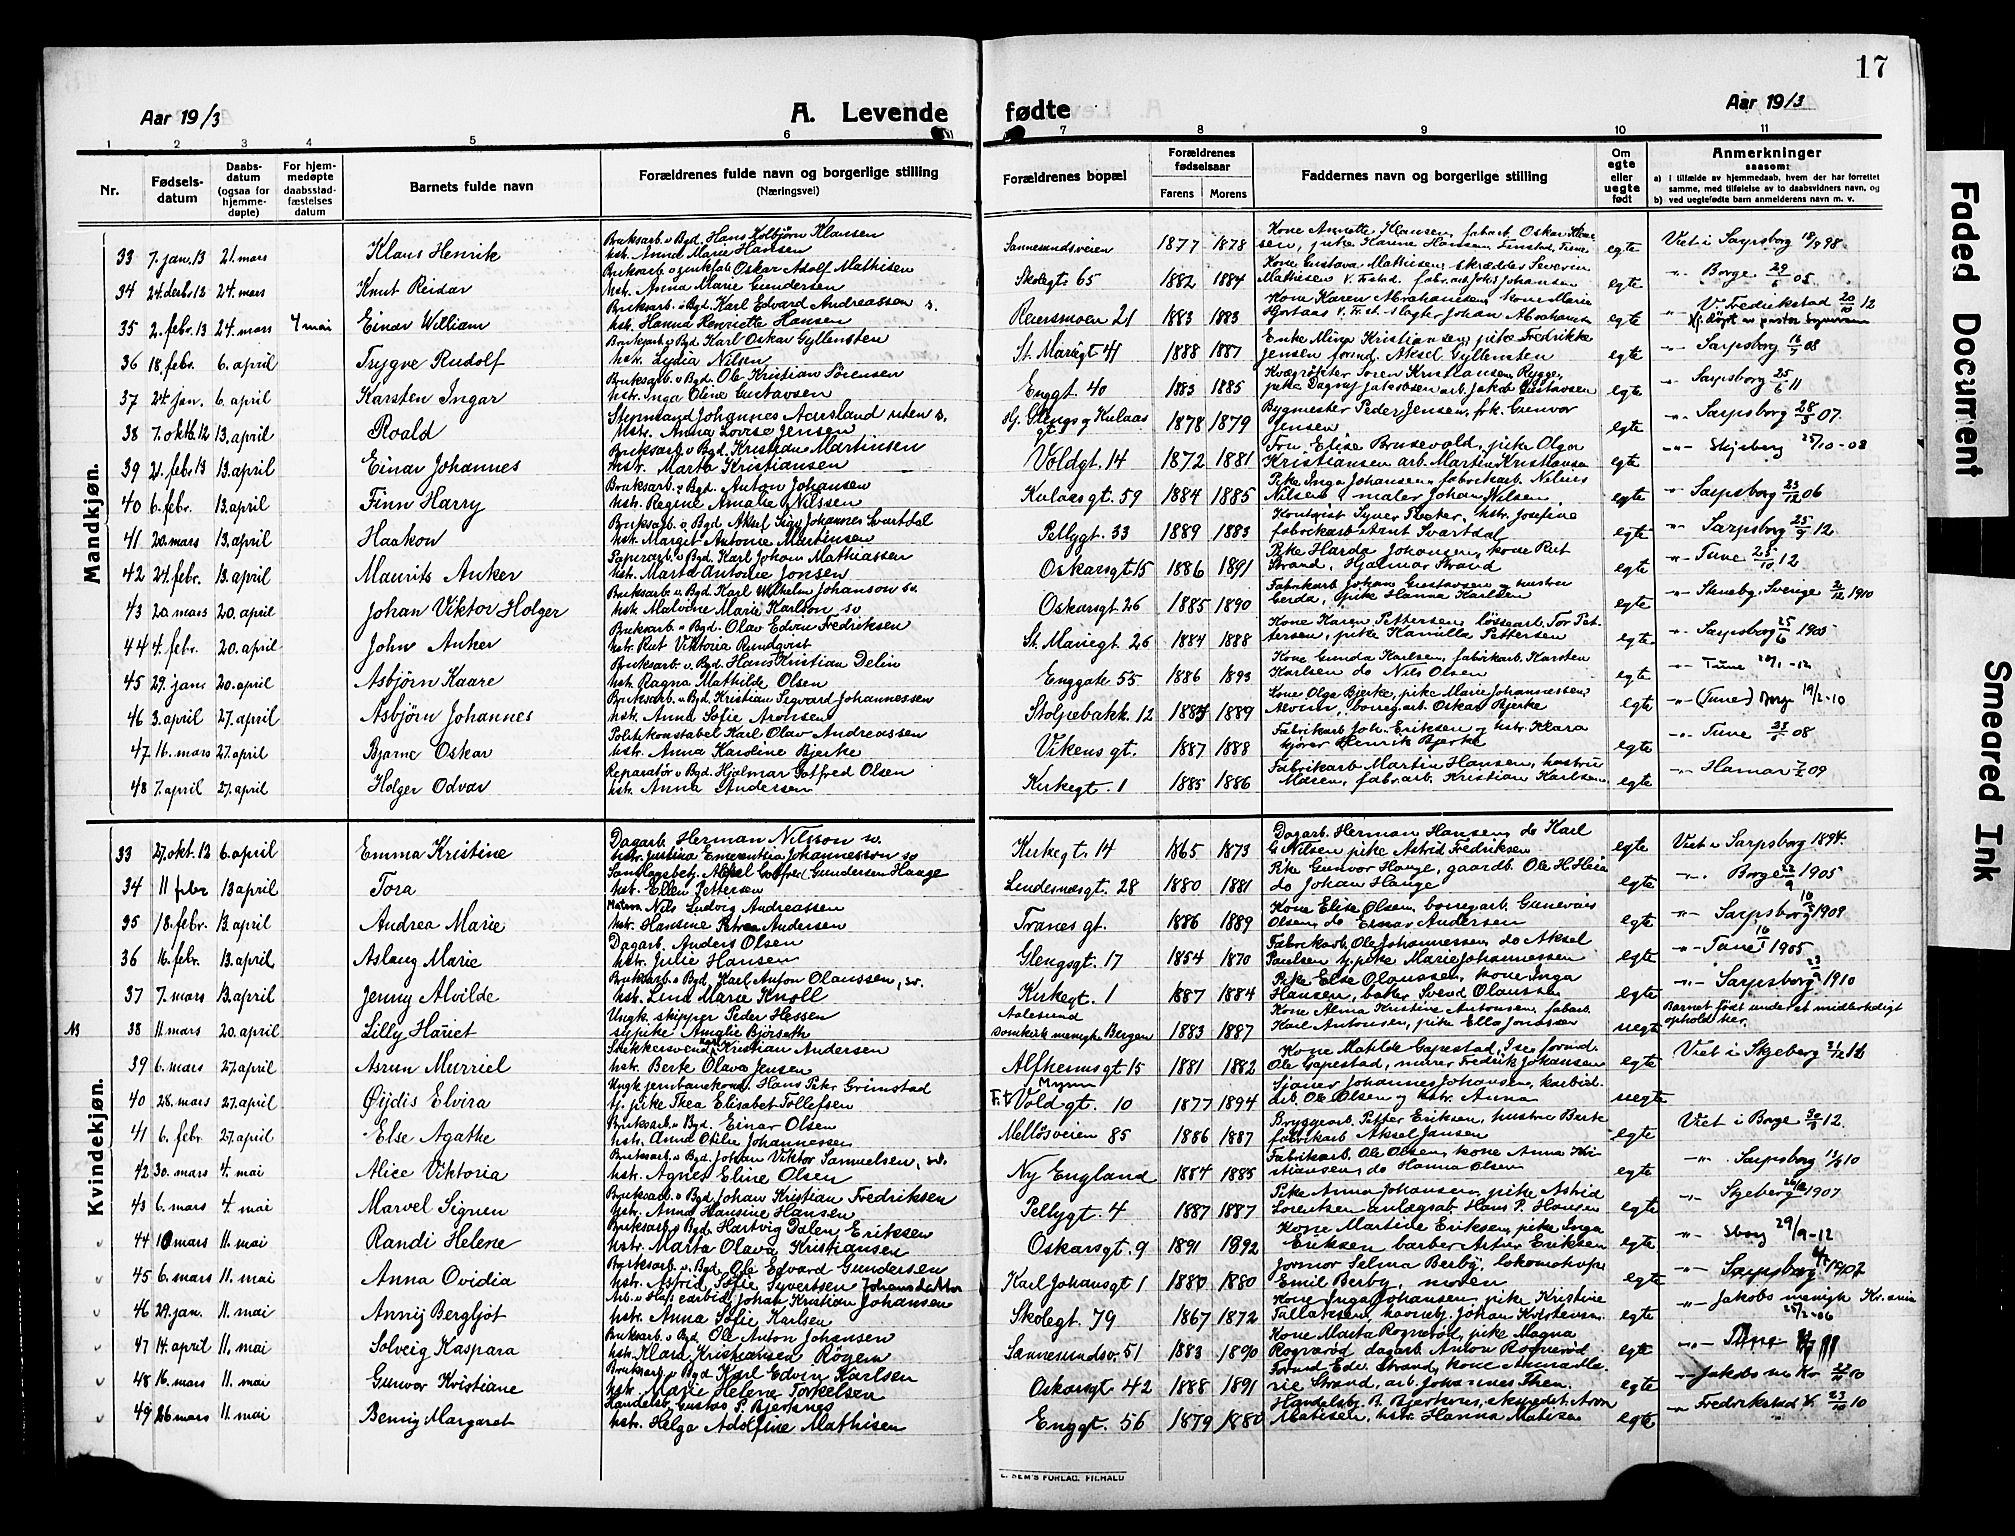 17
Aar 1913
A. Levende
fødte
Aar 1913
1 2 3 4 5 6 7 8 9 10 11
Nr.
Fødsels-
datum
Daabs-
datum
(ogsaa for
hjemme-
døpte)
For hjem-
medøpte
daabsstad-
fæstelses
datum
Barnets fulde navn
Forældrenes fulde navn og borgerlige stilling
(Næringsvei)
Forældrenes bopæl
Forældrenes
fødselsaar
Farens Morens
Faddernes navn og borgerlige stilling
Om
egte
eller
uegte
født
Anmerkninger
saasom:
a) i tilfælde av hjemmedaab, hvem der har forrettet
samme, med tilføielse av to daabsvidners navn, og
b) ved uegtefødte barn anmelderens navn m. v.
Mandkjøn.
33 7. jan. 13 21. mars Klaus Henrik Bruksarb. v. Bgd. Hans Kolbjørn Klausen
hstr. Anna Marie Hansen Sannesundsveien 1877 1878 egte Viet i Sarpsborg 18/9 98
34 24. desbr 12 24. mars Knut Reidar Oskar Adolf Mathisen
hstr. Anna Marie Gundersen Skolegt 65 1882 1884 egte Borge 29/6 05
35 2. febr. 13 24. mars 4 mai Einar William Bruksarb. v. Bgd. Karl Edvard Andreassen s.
hstr. Hanna Henriette Hansen Reiersmoen 21 1883 1883 egte V. Fredrikstad 20/10 12
36 18. febr. 6. april Trygve Rudolf Bruksarb v Bgd Karl Oskar Gyllensten
hstr. Lydia Nilsen St. Mariegt 41 1888 1887 Jensen forvnd. Aksel Gyllensten egte Sarpsborg 16/5 08
37 24. jan. 6. april Karsten Ingar Bruksarb. v Bgd. Ole Kristian Sørensen
hstr. Inga Oline Gustavsen Enggt. 40 1883 1885 pike Dagny Jakobsen arb. Jakob Gustavsen egte Sarpsborg 25/6 11
38 7. oktb. 12 13. april Roald Johannes Aarsland uten s.
Hstr. Anna Lovise Jensen Hj. Glengs og Kulaas gt 1878 1879 Bygmester Peder Jensen, frk. Gunvor
Jensen egte Sarpsborg 28/5 07.
39 21. febr 13 13. april Einar Johannes Bruksarb. v Bgd. Kristian Martinsen
hstr. Marta Kristiansen Voldgt. 14 1872 1881 Fru Elise Brusevold, pike Olga
Kristiansen arb. Martin Kristiansen egte Skjeberg 25/10 - 08
40 6. febr. 13. april Finn Harry Bruksarb. v. Bgd. Anton Johansen
hstr. Regine Amalie Nilssen Kulaasgt. 59 1884 1885 Pike Inga Johansen, fabrikarb. Nilius
Nilsen, maler Johan Nilsen egte Sarpsborg 23/12 06
41 20. mars 13. april Haakon Bruksarb. v Bgd Aksel Sigv Johannes Svartdal
hstr. Margit Antonie Martinsen Pellygt. 33 1889 1883 egte Sarpsborg 25/9 12.
42 24. febr. 13. april Maurits Anker Papirarb. v Bgd. Karl Johan Mathiassen
hstr. Marta Antonie Jonsen Oskarsgt 15 1886 1891 Pike Harda Johansen, kone Rut
Strand, Hjalmar Strand egte Tune 25/10 12
43 20. mars 20. april Johan Viktor Holger Bruksarb. v. Bgd Karl Wilhelm Johanson sv.
hstr. Malvine Marie Karlson sv Oskarsgt 26 1885 1890 Fabrikarb. Johan Gustavsen og hustru
Gerda, pike Hanna Karlsen egte Steneby, Sverige 2/12 1910
44 4. febr. 20. april John Anker Bruksarb v Bgd. Olav Edvin Fredriksen
hstr. Rut Viktoria Rundqvist St. Mariegt 26 1884 1888 Kone Karen Pettersen løssearb. Tor Pet-
tersen, pike Kamilla Pettersen egte Sarpsborg 25/6 1905
45 29. jan. 20. april Asbjørn Kaare Bruksarb. v. Bgd. Hans Kristian Delin
hstr. Ragna Mathilde Olsen Enggate 55 1886 1893 Kone Gunda Karlsen, fabrikarb. Karsten
Karlsen do Nils Olsen egte Tune
46 3. april 27. april Asbjørn Johannes Bruksarb. v. Bgd. Kristian Sigvard Johannessen
hstr. Anna Sofie Aronsen Stolpebakk. 12 1889 Kone Olga Bjerke, pike Marie Johannessen,
borregarb. Oskar Bjerke egte (Tune) Borge 19/2 - 10
47 16. mars 27. april Bjarne Oskar Politikonstabel Karl Olav Andreassen
hstr. Anna Karoline Bjerke Vikens gt. 1887 1888 Fabrikarb Joh. Eriksen og hstr. Klara
kjører Henrik Bjerke egte Tune 08
48 7. april 27. april Holger Odvar Reparatør v Bgd. Hjalmar Gotfred Olsen
hstr. Anna Andersen Kirkegt. 1 1885 1886 Fabrikarb Martin Hansen, hustru
fabr. arb. Kristian Karlsen egte Hamar 09
Kvindekjøn.
33 27. okt. 12 6. april Emma Kristine Dagarb. Herman Nilsson sv.
hstr. Justina Emerentsia Johannesson sv Kirkegt. 14 1865 1873 Dagarb. Herman Hansen, do Karl
G Nilsen pike Astrid Fredriksen egte Viet i Sarpsborg 1894.
34 11 febr 13 april Tora Gotfred Gundersen Hauge
hstr. Ellen Pettersen Lendesnæsgt. 28 1880 1881 Pike Gunvor Hauge, gaardb. Ole H Heia
do Johan Hauge egte Borge 22/9 1905
35 18. febr. 13. april Andrea Marie Nils Ludvig Andreassen
hstr. Hansine Petrea Andersen Tranes gt. 1886 1889 Kone Elise Olsen, borregarb. Gunerius
Olsen do Einar Andersen egte Sarpsborg 1909
36 16. febr. 13. april Aslaug Marie Dagarb. Anders Olsen
hstr. Julie Hansen Glengsgt. 17 1854 1870 Fabrikarb. Ole Johannessen, do Aksel
Paulsen pike Marie Johannessen egte Tune 1905
37 7. mars 13. april Jenny Alvilde Bruksarb v Bgd. Karl Anton Olaussen, sv.
hstr. Lina Marie Knoll Kirkegt. 1 1887 1884 Pike Else Olaussen, kone Inga
Hansen, baker Svend Olaussen egte Sarpsborg 1910
38 11. mars 20. april Lilly Hariet Ungk. skipper Peder Hessen
sypike Amalie Bjørseth Aalesund
domkirke menigh Bergen 1883 1887 Kone Alma Kristine Antonsen, fabarb.
Karl Antonsen, pike Ella Jonassen uegte Barnet født under et midlertidigt
ophold her.
39 6. mars 27. april Asrun Murriel Snekkersvend Kristian Andersen
hstr. Berte Olava Jensen Alfheimsgt 15 1881 1882 Kone Matilde Gapestad, Ise, forvnd.
Ole Gapestad, murer Fredrik Johansen egte Viet i Skjeberg 21/12 12
40 28. mars 27. april Øijdis Elvira Ungk. jernbanekond. Hans Peter Grimstad
tj. pike Thea Elisabet Tollefsen Voldgt. 10 1877 1894 Sjømer Johannes Johansen, karbid-
arb. Ole Olsen og hstr. Anna uegte
41 6. febr. 27. april Else Agathe Bruksarb v. Bgd. Einar Olsen
hstr. Anna Otilie Johannessen Melløsveien 85 1886 1887 Bryggearb. Petter Eriksen, hustru Berte
fabrikarb Aksel Jansen egte Viet i Borge 12.
42 30. mars 4. mai Alice Viktoria Bruksarb. v. Bgd. Johan Viktor Samuelsen, sv.
hstr. Agnes Eline Olsen Ny England 1884 1885 Fabrikarb. Ole Olsen, kone Anna Kri-
stiansen, do Hanna Olsen egte Sarpsborg 10
43 6. mars 4. mai Marvel Signen Bruksarb. v Bgd Johan Kristian Fredriksen
hstr. Anna Hansine Hansen Pellygt. 4 1887 1887 Pike Anna Johansen, pike Astrid
Lorentsen anlægsab. Hans P. Hansen egte Skjeberg 1907
44 10 mars 11. mai Randi Helene Bruksarb v Bgd. Hartvig Dalen Eriksen
hstr. Marta Olava Kristiansen Oskarsgt. 9 1891 1892 Kone Martine Eriksen, pike Inga
Eriksen barber Artur Eriksen egte Sborg 29/9-12
45 6. mars 11. mai Anna Ovidia Bruksarb. v. Bgd. Ole Edvard Gundersen
hstr. Astrid Sofie Syvertsen Karl Johansgt 1 1880 1880 Jormor Selma Berby, lokomotvfp.
Emil Berby, moren egte Sarpsborg 1902
46 29. jan. 11. mai Annij Bergljot Johan Kristian Johansen
hstr. Anna Sofie Karlsen Skolegt. 79 1867 1872 Kone Inga Johansen, pike Kristine
Johan Kristensen egte Jakobs menigh Kr.ania
25/2-06
47 14. april 11. mai Solveig Kaspara Bruksarb v Bgd. Ole Anton Johansen
hstr. Klara Kristiansen Røgem Sannesundsv. 51 1883 1890 Kone Marta Rognerød, pike Magna
Rognerød dagarb. Anton Rognerød egte Tune
48 16. mars 11. mai Gunvor Kristiane Bruksarb v Bgd Karl Edvin Karlsen
hstr. Marie Helene Torkelsen Oskarsgt 42 1888 1891 Forvnd Edv. Strand, kone Annæ Ma-
rie Strand, arb. Johannes Then. egte Jakobs m Kr. 10
49 26 mars 11. mai Benny Margaret Handelsb. Gustav P. Bjerknes
hstr. Helga Adolfine Mathisen Enggt. 56 1879 1880 Handelsbj. R. Bjerknes, ekspedit. Aron
Matisen, hstr. Hanna Matisen egte Fredrikstad V. 23/10 10
E. SEM'S FORLAG, FR.HALD
Faded Document
Smeared Ink